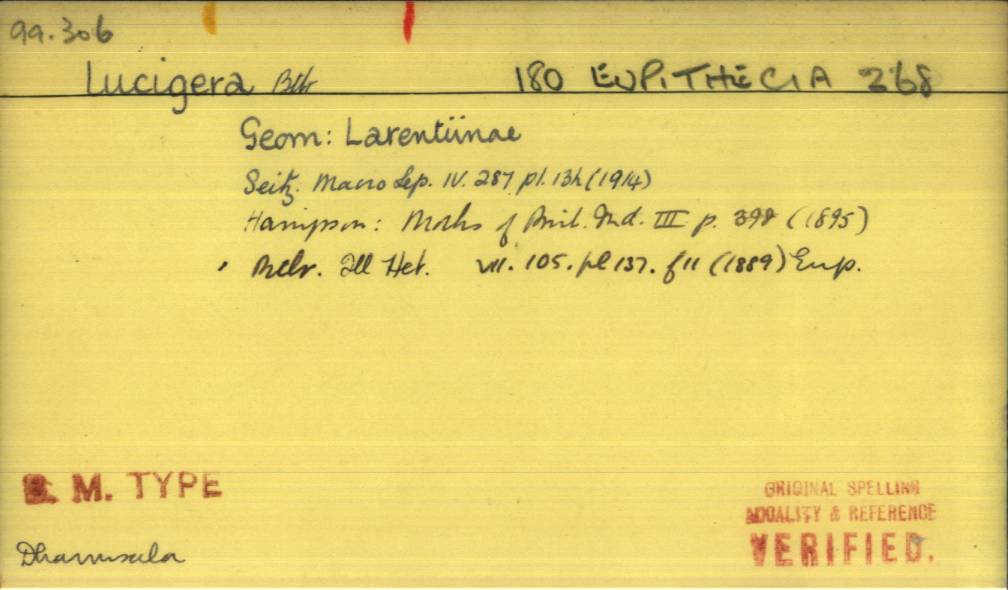 99.306
Lucigera Btlr 180 EUPITHECIA 268
Geom: Larentiinae
Seitz. Macro Lep. IV. 287 pl. 13h (1914)
Hampson: Moths of Brit. Ind. III p. 398 (1895)
Btlr. Ill Het. VII. 105. pl 137. f 11 (1889) Eup.
B. M. TYPE
ORIGINAL SPELLING
LOCALITY & REFERENCE
VERIFIED.
Dharmsala